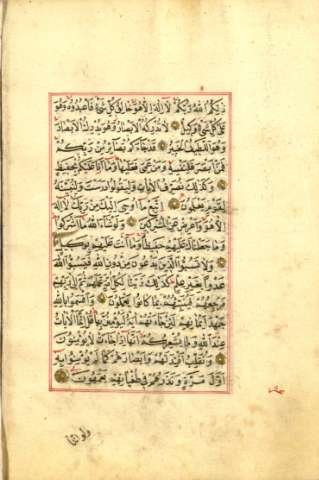 ذلكم الله ربكم لا اله الا هو خالق كل شئ فاعبدوه وهو
على كل شئ وكيل لا تدركه الابصار وهو يدرك الابصار
وهو اللطيف الخبير قد جاءكم بصائر من ربكم
فمن ابصر فلنفسه ومن عمي فعليها وما انا عليكم بحفيظ
وكذلك نصرف الايات وليقولوا درست ولنبينه
لقوم يعلمون اتبع ما اوحي اليك من ربك لا اله
الا هو واعرض عن المشركين ولو شاء الله ما اشركوا
وما جعلناك عليهم حفيظا وما انت عليهم بوكيل
ولا تسبوا الذين يدعون من دون الله فيسبوا الله
عدوا بغير علم كذلك زينا لكل امة عملهم ثم الى ربهم
مرجعهم فينبئهم بما كانوا يعملون واقسموا بالله
جهد ايمانهم لئن جاءتهم اية ليؤمنن بها قل انما الايات
عند الله وما يشعركم انها اذا جاءت لا يؤمنون
ونقلب افئدتهم وابصارهم كما لم يؤمنوا به
اول مرة ونذرهم في طغيانهم يعمهون
ولو اننا